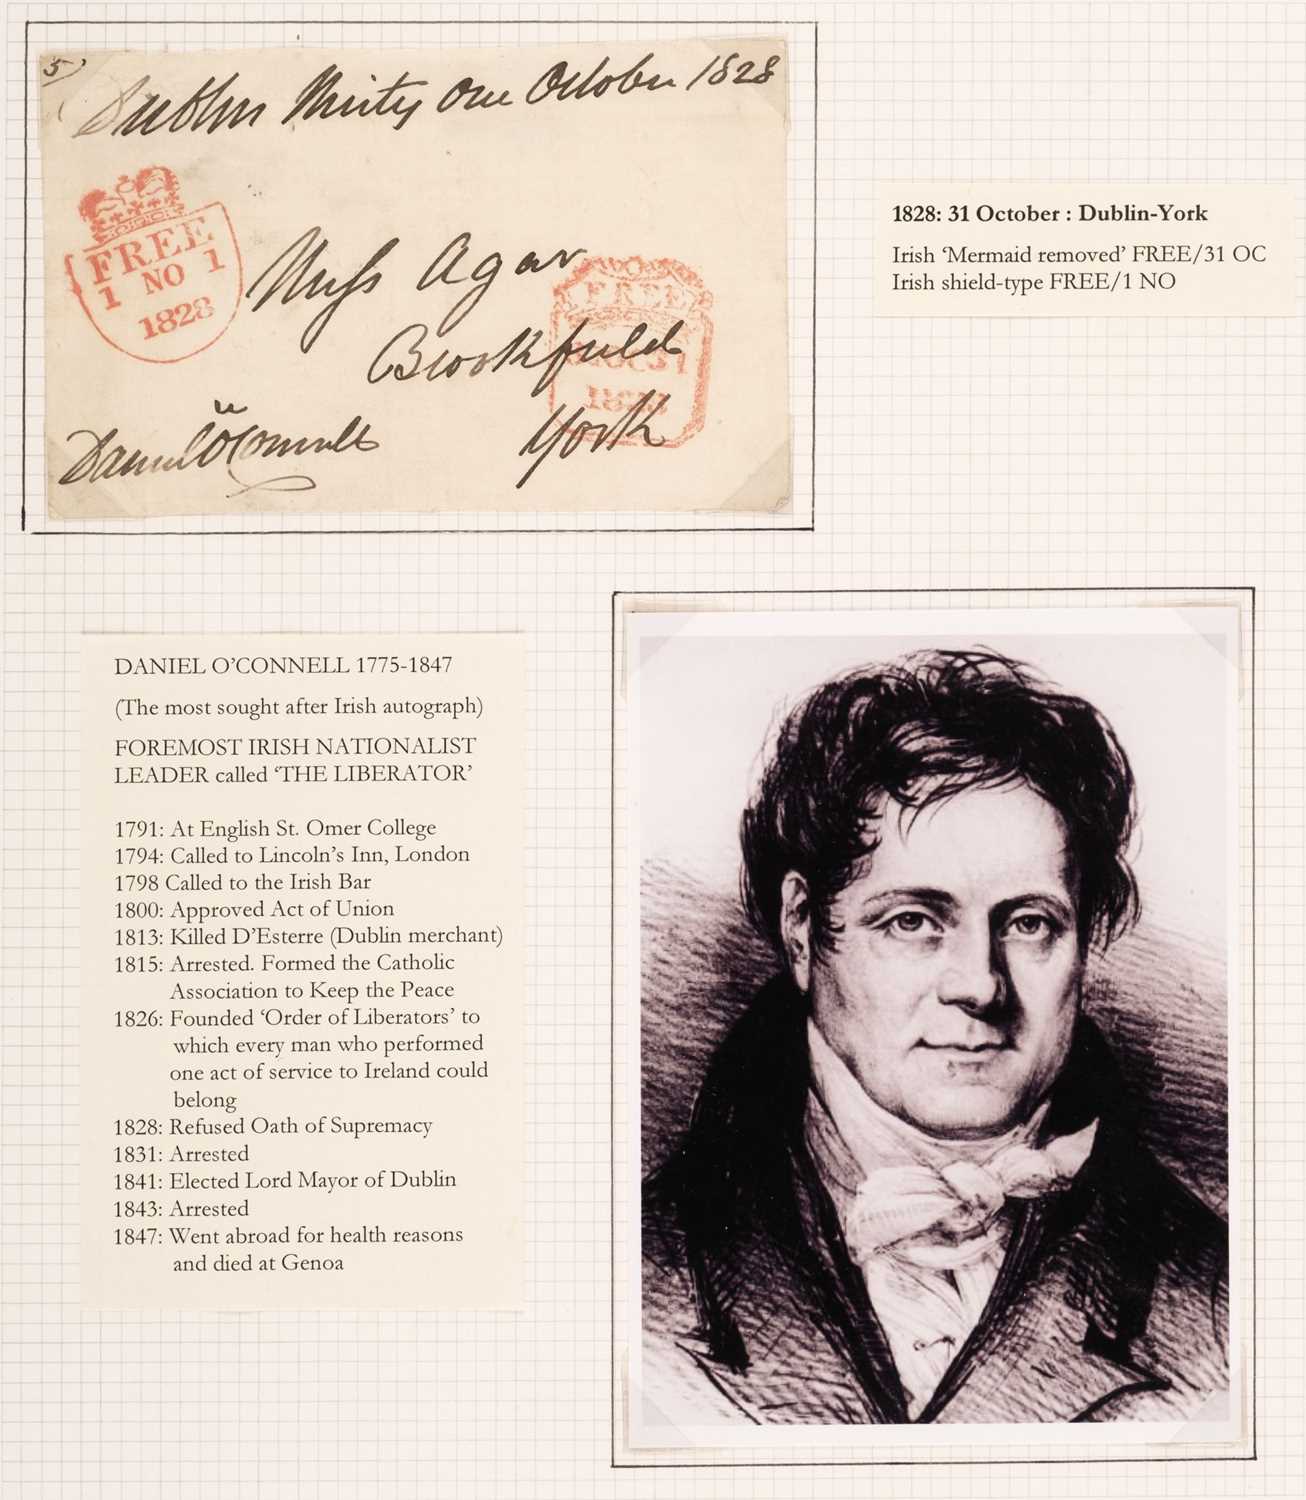 5
Dublin thirty one October 1828
FREE
1 NO 1
1828
Miss Agar
FREE
Brookfield
1828
York
Daniel O'Connell
1828: 31 October : Dublin-York
Irish ‘Mermaid removed’ FREE/31 OC
Irish shield-type FREE/1 NO
DANIEL O’CONNELL 1775-1847
(The most sought after Irish autograph)
FOREMOST IRISH NATIONALIST
LEADER called ‘THE LIBERATOR’
1791: At English St. Omer College
1794: Called to Lincoln’s Inn, London
1798 Called to the Irish Bar
1800: Approved Act of Union
1813: Killed D’Esterre (Dublin merchant)
1815: Arrested. Formed the Catholic
Association to Keep the Peace
1826: Founded ‘Order of Liberators’ to
which every man who performed
one act of service to Ireland could
belong
1828: Refused Oath of Supremacy
1831: Arrested
1841: Elected Lord Mayor of Dublin
1843: Arrested
1847: Went abroad for health reasons
and died at Genoa